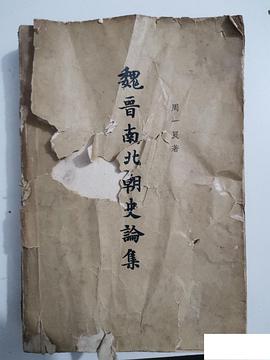 魏晋南北朝史論集
周一良著